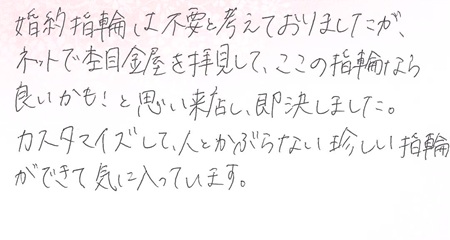 婚約指輪は不要と考えておりましたが、
ネットで杢目金屋を拝見して、ここの指輪なら
良いかも！と思い来店し、即決しました。
カスタマイズして、人とかぶらない珍しい指輪
ができて気に入っています。